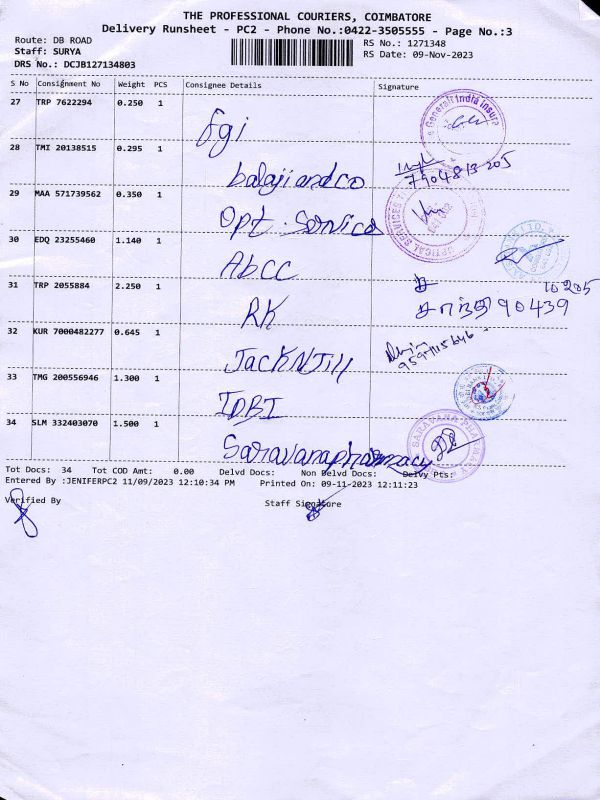 THE PROFESSIONAL COURIERS, COIMBATORE
Delivery Runsheet - PC2 - Phone No.:0422-3505555 - Page No.:3
Route: DB ROAD RS No.: 1271348
Staff: SURYA RS Date: 09-Nov-2023
DRS No.: DCJB127134803
S No Consignment No Weight PCS Consignee Details Signature
27 TRP 7622294 0.250 1 fgi
Generali India Insura
28 TMI 20138515 0.295 1 balaji and co
29 MAA 571739562 0.350 1 Opt. Service
OPTICAL SERVICES
30 EDQ 23255460 1.140 1 Abcc
31 TRP 2055884 2.250 1 RK
சாந்தி 90439
10205
32 KUR 7000482277 0.645 1 JackNJill
33 TMG 200556946 1.300 1 IDBI
34 SLM 332403070 1.500 1 Saravanapharmacy
SARAVANA
Tot Docs: 34 Tot COD Amt: 0.00 Delvd Docs: Non Delvd Docs: Delvy Pts:
Entered By :JENIFERPC2 11/09/2023 12:10:34 PM Printed On: 09-11-2023 12:11:23
Verified By Staff Signature